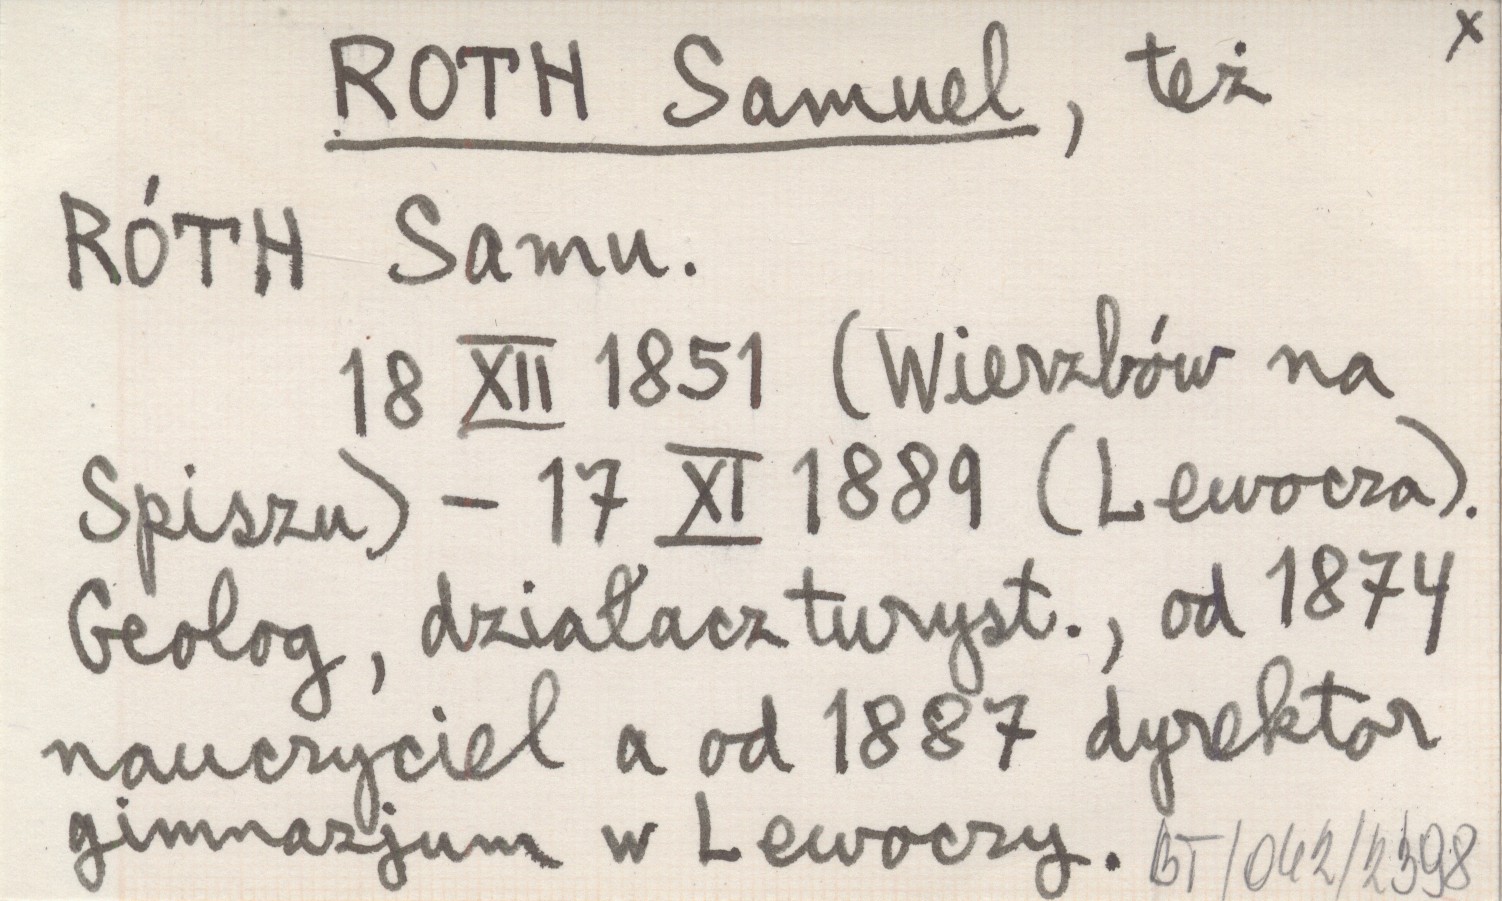 ROTH Samuel, też
x
RÓTH Samu.
18 XII 1851 (Wierzbów na
Spiszu) – 17 XI 1889 (Lewocza).
Geolog, działacz turyst., od 1874
nauczyciel a od 1887 dyrektor
gimnazjum w Lewoczy.
BT/042/2398